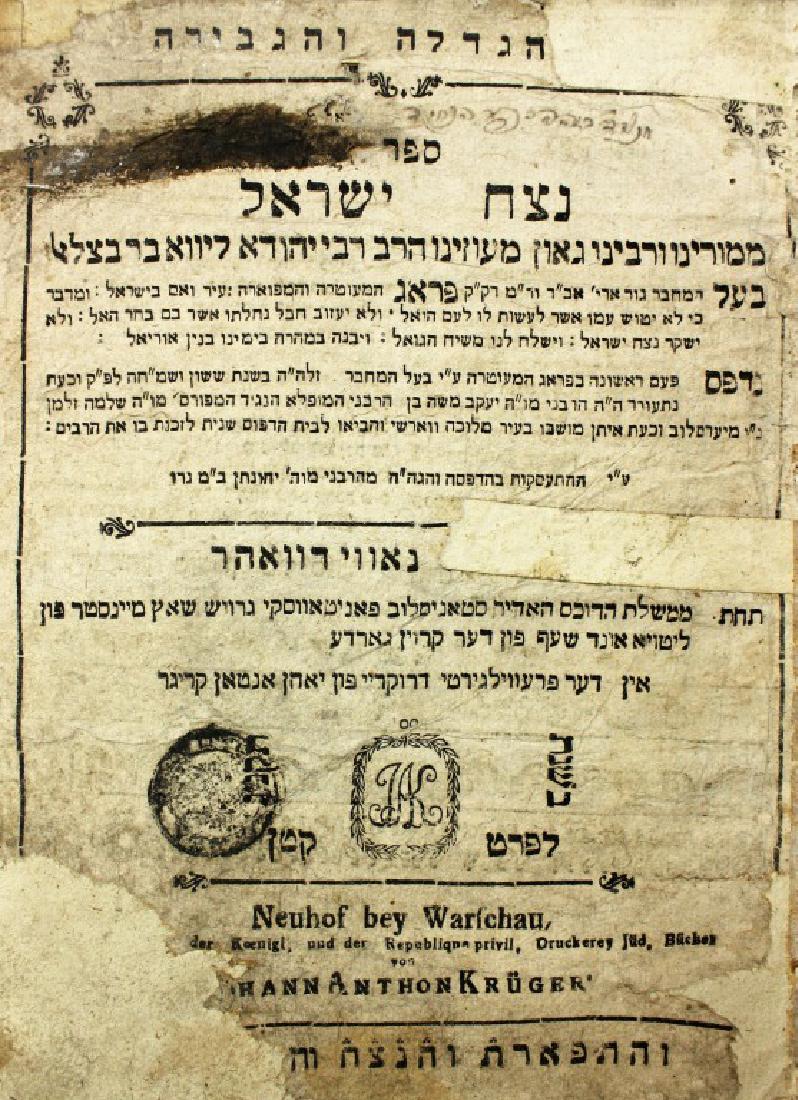 הגדלה והגבורה
ספר
נצח ישראל
ממורינו ורבינו גאון מעוזינו הרב רבי יהודא ליווא בר בצלאל
בעל המחבר גור ארי' אב"ד ור"מ דק"ק פראג המעוטרה והמפוארה עיר ואם בישראל : ומדבר
כי לא יטוש עמו אשר לעשות לו לעם הואל ולא יעזוב חבל נחלתו אשר בם בחר האל : ולא
ישקר נצח ישראל : וישלח לנו משיח הגואל : ויבנה במהרה בימינו בנין אוריאל :
נדפס פעם ראשונה בפראג המעוטרה ע"י בעל המחבר זלה"ה בשנת ששון ושמ"חה לפ"ק וכעת
נתעורר ה"ה הרבני מו"ה יעקב משה בן הרבני המופלא הנגיד המפורס' מו"ה שלמה זלמן
וכעת איתן מושבו בעיר מלוכה ווארשי והביאו לבית הדפוס שנית לזכות בו את הרבים :
ע"י התעסקות בהדפסה והגה"ה מהרבני מוה' יהונתן ב"מ
נאווי דוואהר
תחת ממשלת הדוכס האדיר סטאניסלוב פאניטאווסקי גרויש שאץ מיינסטר פון
ליטויא אונד שעף פון דער קרוין גארדע
אין דער פרעווילגירטי דרוקריי פון יאהן אנטאן קריגר
בשנת
לפרט קטן
Neuhof bey Warſchau,
der Kœnigl, und der Republique privil, Druckerey Jüd, Bücher
von
HANN ANTHON KRÜGER
והתפארת והנצח וה